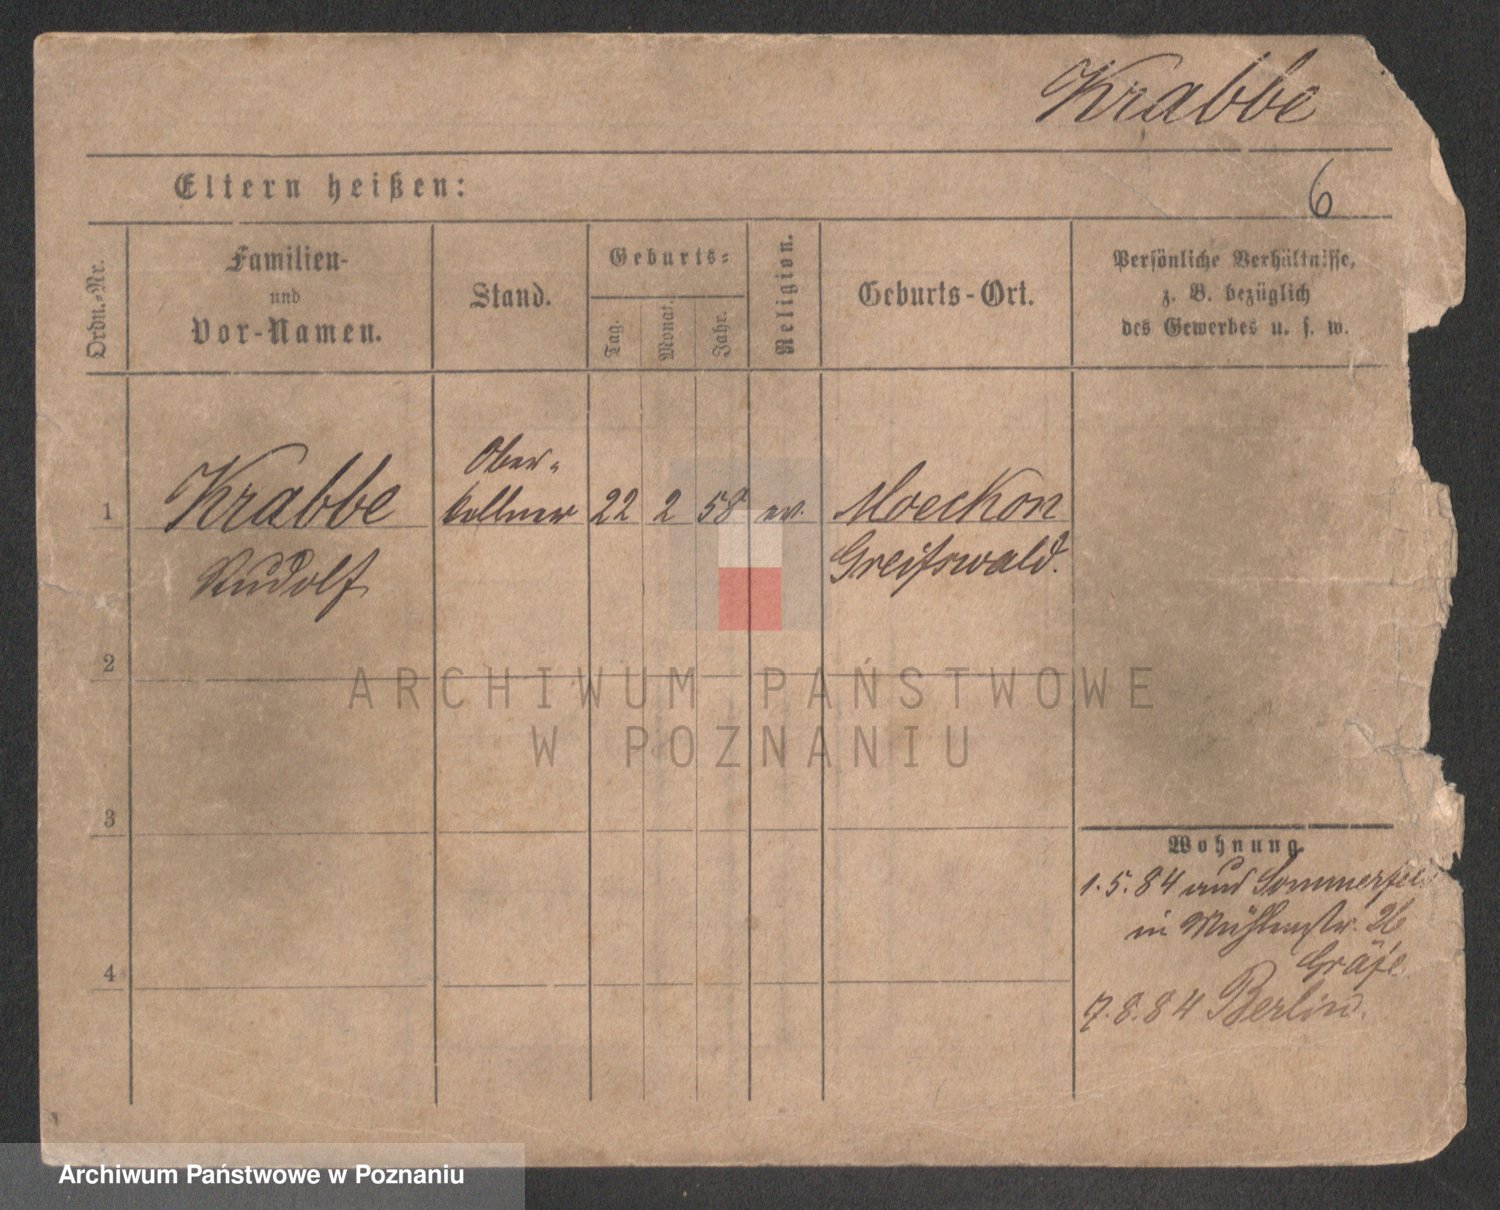 Krabbe
6
Eltern heißen:
Ordn.-Nr.
Familien-
und
Vor-Namen.
Stand.
Geburts-
Tag.
Monat.
Jahr.
Religion.
Geburts-Ort.
Persönliche Verhältnisse,
z. B. bezüglich
des Gewerbes u. s. w.
1
Krabbe
Rudolf
Ober-
kellner
22
2
58
ev.
Moeckow
Greifswald.
2
3
4
Wohnung.
1.5.84 aus Sommerfeld
in Mühlenstr. 26
Gräfe
7.8.84 Berlin.
ARCHIWUM PAŃSTWOWE
W POZNANIU
Archiwum Państwowe w Poznaniu